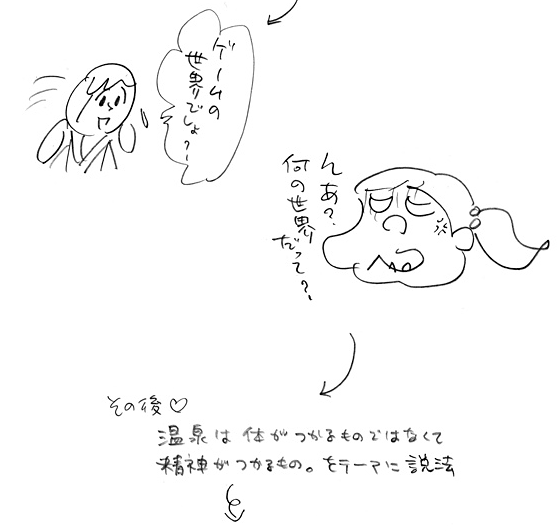 ゲームの
世界でしょ？！
んあ？
何の世界
だって？！
その後♡
温泉は体がつかるものではなくて
精神がつかるもの。をテーマに説法